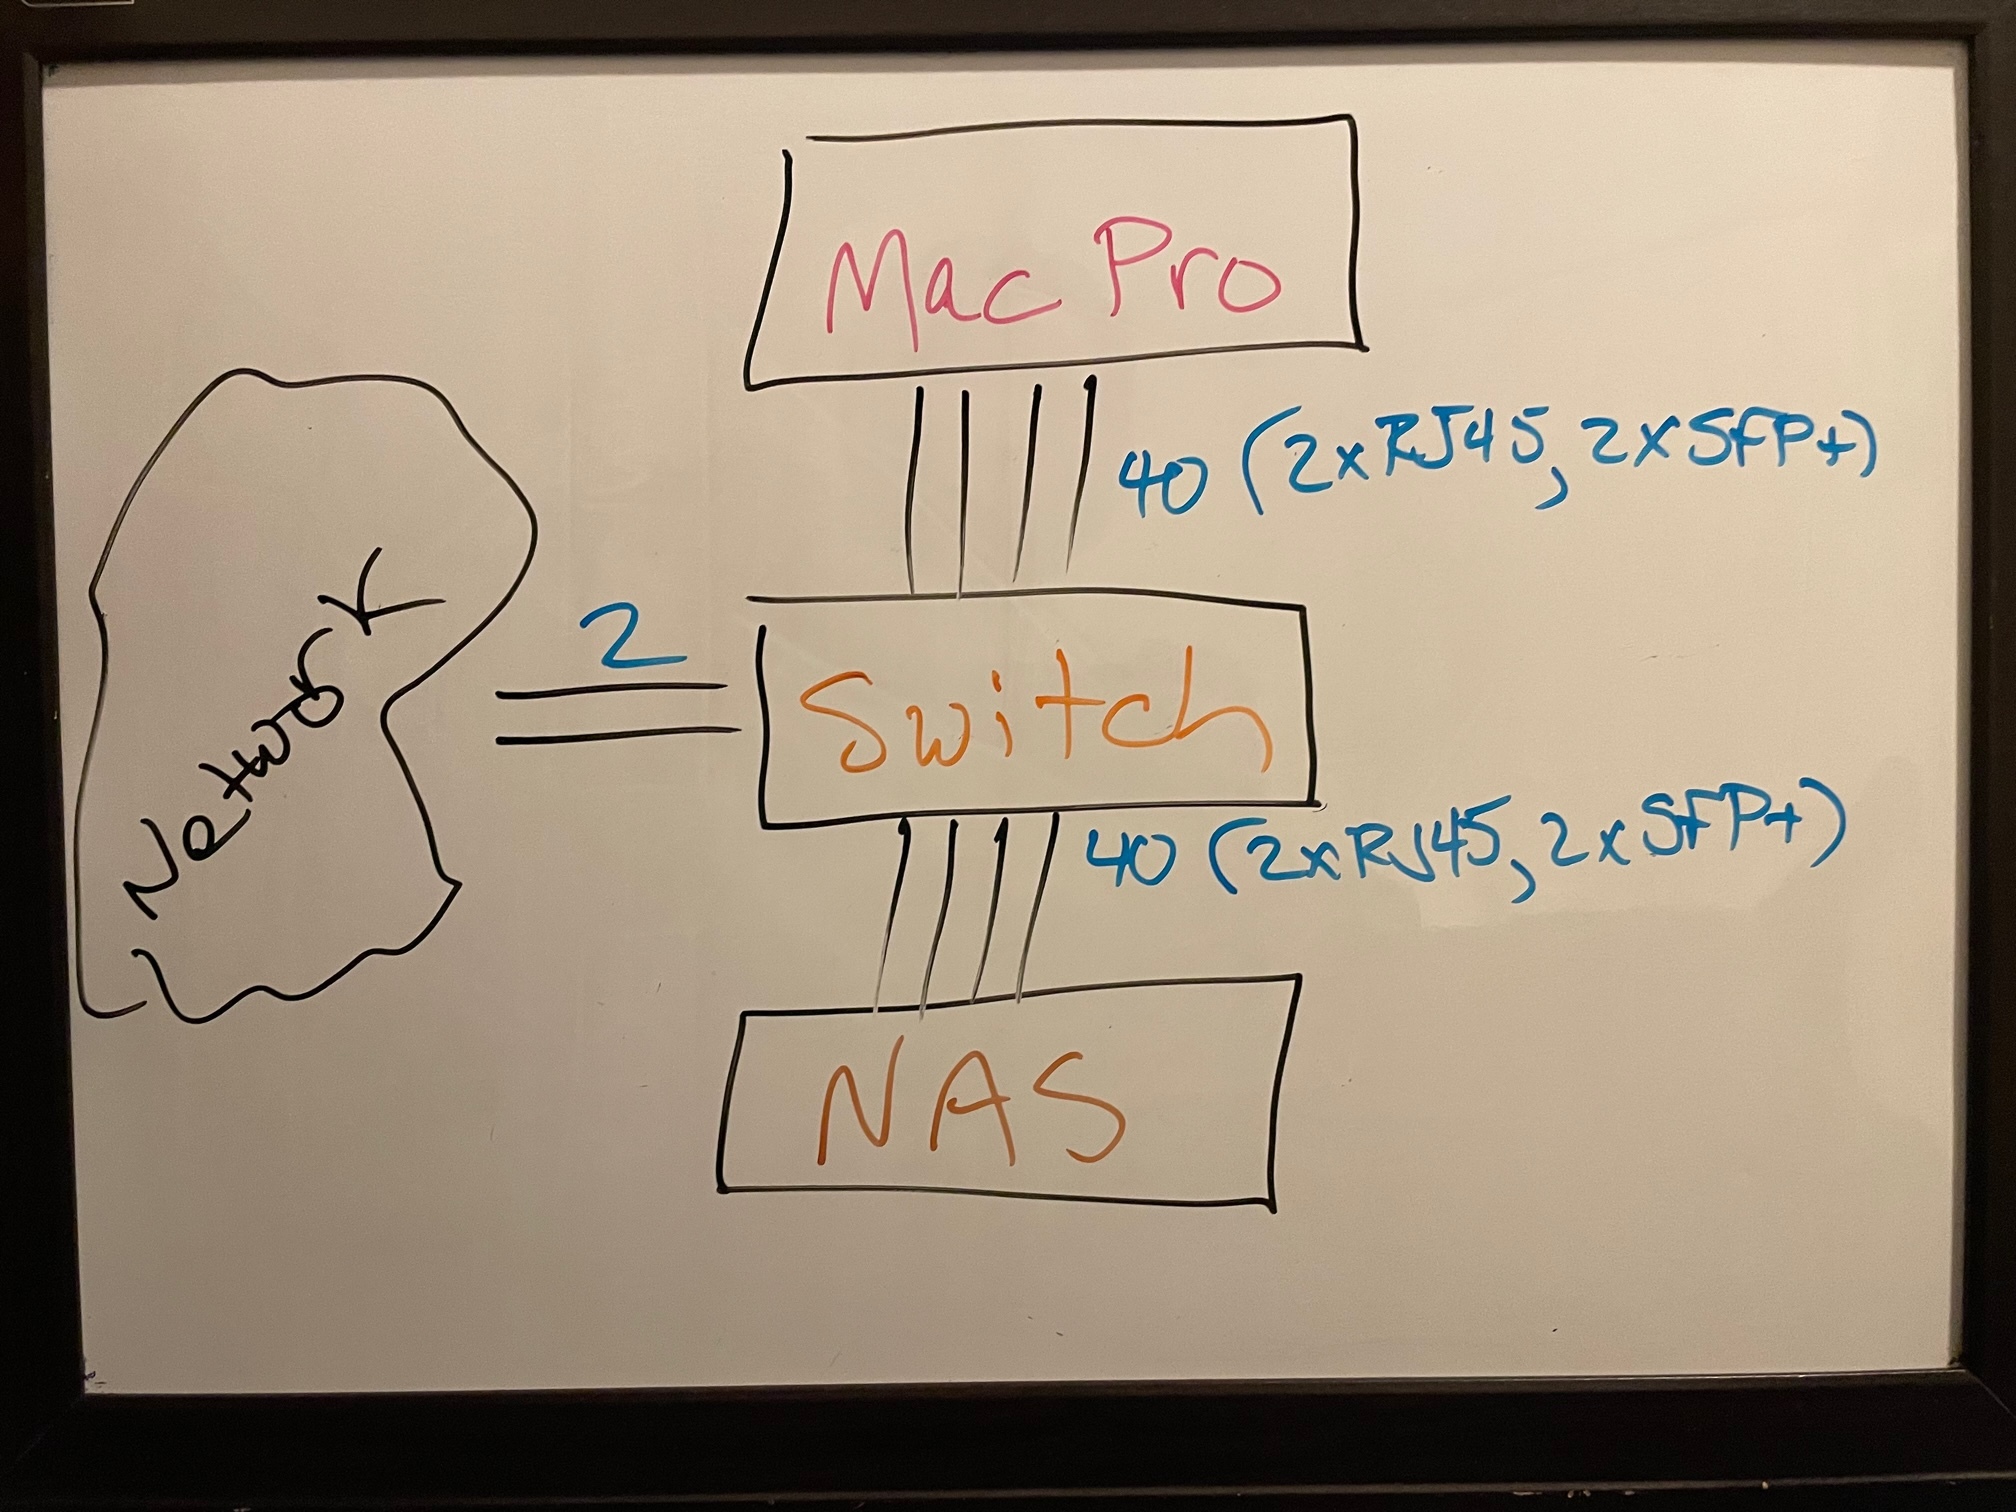 Mac Pro
40 (2xRJ45, 2xSFP+)
Network
2
Switch
40 (2xRJ45, 2xSFP+)
NAS